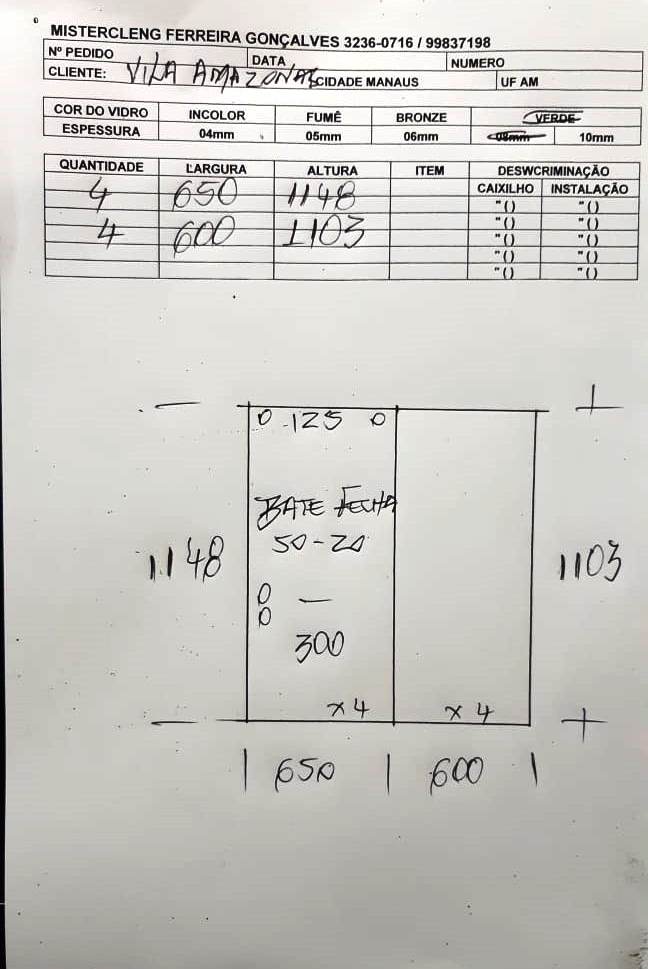 MISTERCLENG FERREIRA GONÇALVES 3236-0716 / 99837198
Nº PEDIDO DATA NUMERO
CLIENTE: VILA AMAZONAS CIDADE MANAUS UF AM
COR DO VIDRO INCOLOR FUMÊ BRONZE VERDE
ESPESSURA 04mm 05mm 06mm 08mm 10mm
QUANTIDADE LARGURA ALTURA ITEM DESWCRIMINAÇÃO
CAIXILHO INSTALAÇÃO
4 650 1148 "() "()
"() "()
4 600 1103 "() "()
"() "()
"() "()
0 125 0
BATE FECHA
50-20
1148 1103
0 —
0
300
x 4 x 4
650 600